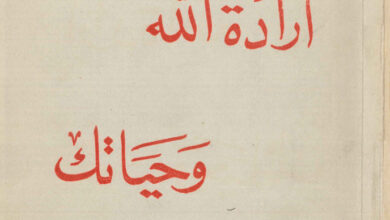 ارادة الله
وَحَيَاتك